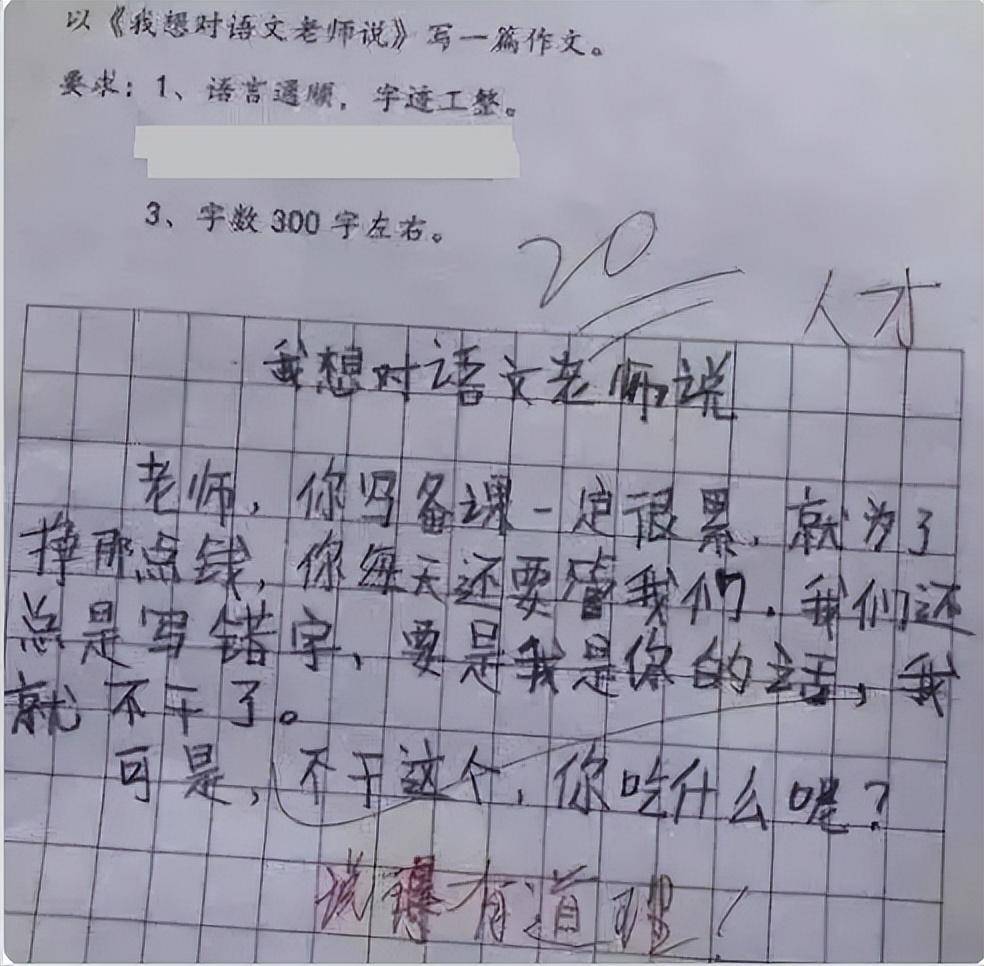 以《我想对语文老师说》写一篇作文。
要求：1、语言通顺，字迹工整。
3、字数300字左右。
20
人才
我想对语文老师说
老师，你写备课一定很累，就为了
挣那点钱，你每天还要管我们，我们还
总是写错字，要是我是你的话，我
就不干了。
可是，不干这个，你吃什么呢？
说得有道理！